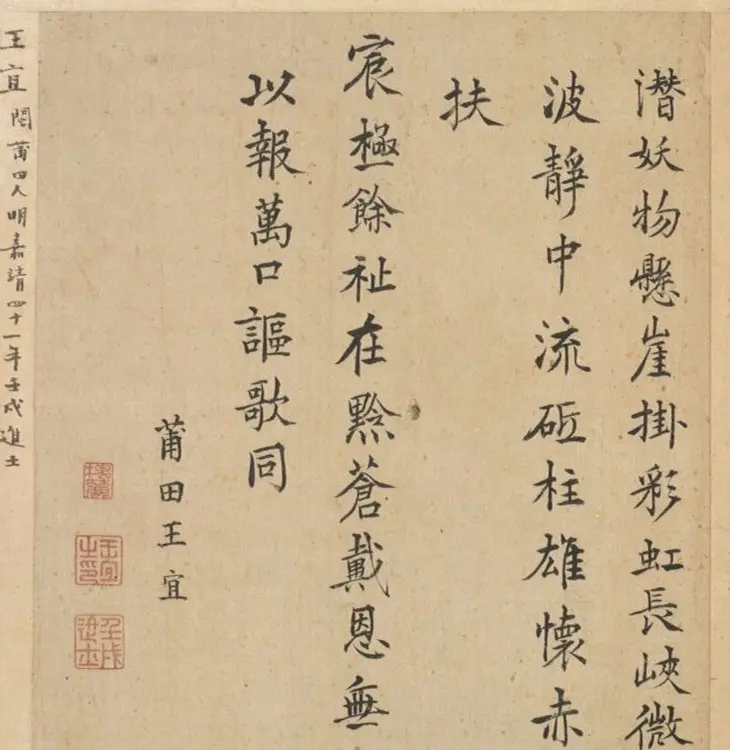 潛妖物懸崖掛彩虹長峽微
波靜中流砥柱雄懷赤
扶
宸極餘祉在黔蒼戴恩無
以報萬口謳歌同
莆田王宜
王宜之印
壬戌進士
王宜 閩莆田人明嘉靖四十一年壬戌進士